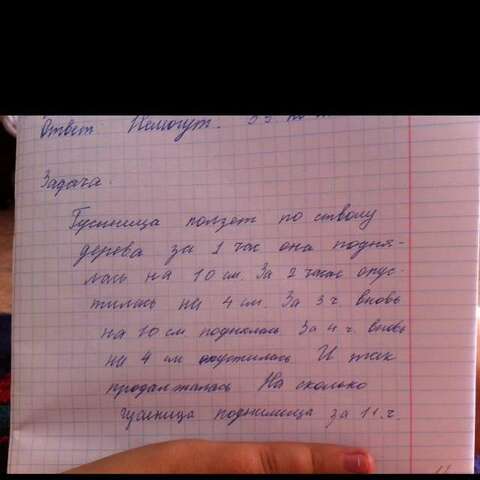 Ответ. Немогут.
Задача.
Гусиница ползет по стволу
дерева за 1 час она подня-
лась на 10 см. За 2 часа опус-
тилась на 4 см. За 3 ч. вновь
на 10 см поднялась За 4 ч. вновь
на 4 см опустилась И так
продалжалась На сколько
гусиница поднимица за 11.ч.